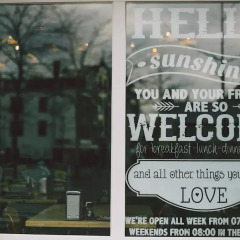 HELL
sunshin
YOU AND YOUR FR
ARE SO
WELCO
for breakfast-lunch-dinn
and all other things you
LOVE
WE'RE OPEN ALL WEEK FROM 07
WEEKENDS FROM 08:00 IN THE